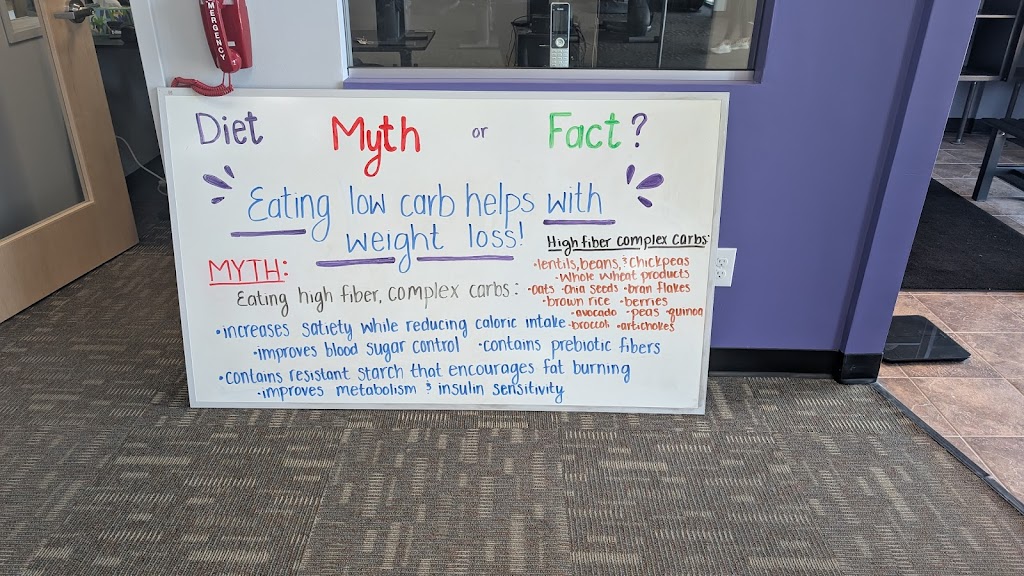 EMERGENCY
Diet Myth or Fact?
Eating low carb helps with
weight loss!
MYTH:
Eating high fiber, complex carbs:
•increases satiety while reducing caloric intake
•improves blood sugar control •contains prebiotic fibers
•contains resistant starch that encourages fat burning
•improves metabolism & insulin sensitivity
High fiber complex carbs:
•lentils, beans, & chickpeas
•Whole wheat products
•oats •chia seeds •bran flakes
•brown rice •berries
•avocado •peas •quinoa
•broccoli •artichokes